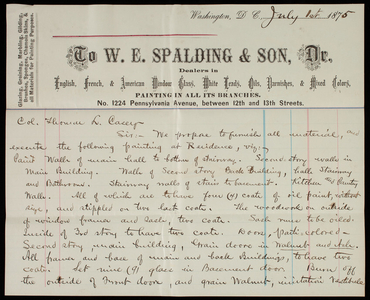 Washington, D. C. July 1st 1875
To W. E. SPALDING & SON, Dr.
Dealers in
English, French, & American Window Glass, White Leads, Oils, Varnishes, & Mixed Colors,
PAINTING IN ALL ITS BRANCHES.
No. 1224 Pennsylvania Avenue, between 12th and 13th Streets.
Graining, Marbling, Gilding,
Sponges, Chamois Skins, &
all Materials for Painting Purposes.
Col. Thomas L. Casey
Sir:- We propose to furnish all material, and
execute the following painting at Residence, viz:-
Paint Walls of main hall to bottom of Stairway. Second story walls in
Main Building. Walls of Second Story Back Building, halls Stairway
and Bathrooms. Stairway walls of stairs to basement. Kitchen and Pantry
Walls. All of which are to have four (4) coats of oil paint, without
size, and stippled on two last coats. The woodwork on outside
of window frames and Sash, two coats. Sash runs to be oiled.
Inside of 3rd story to have two coats. Doors, parti-colored-
Second story main building, Grain doors in Walnut and Ash.
All frames and base of main and back Buildings, to have two
coats. Set nine (9) glass in Basement door. Burn off
the outside of Front door, and Grain Walnut, imitation Vestibule